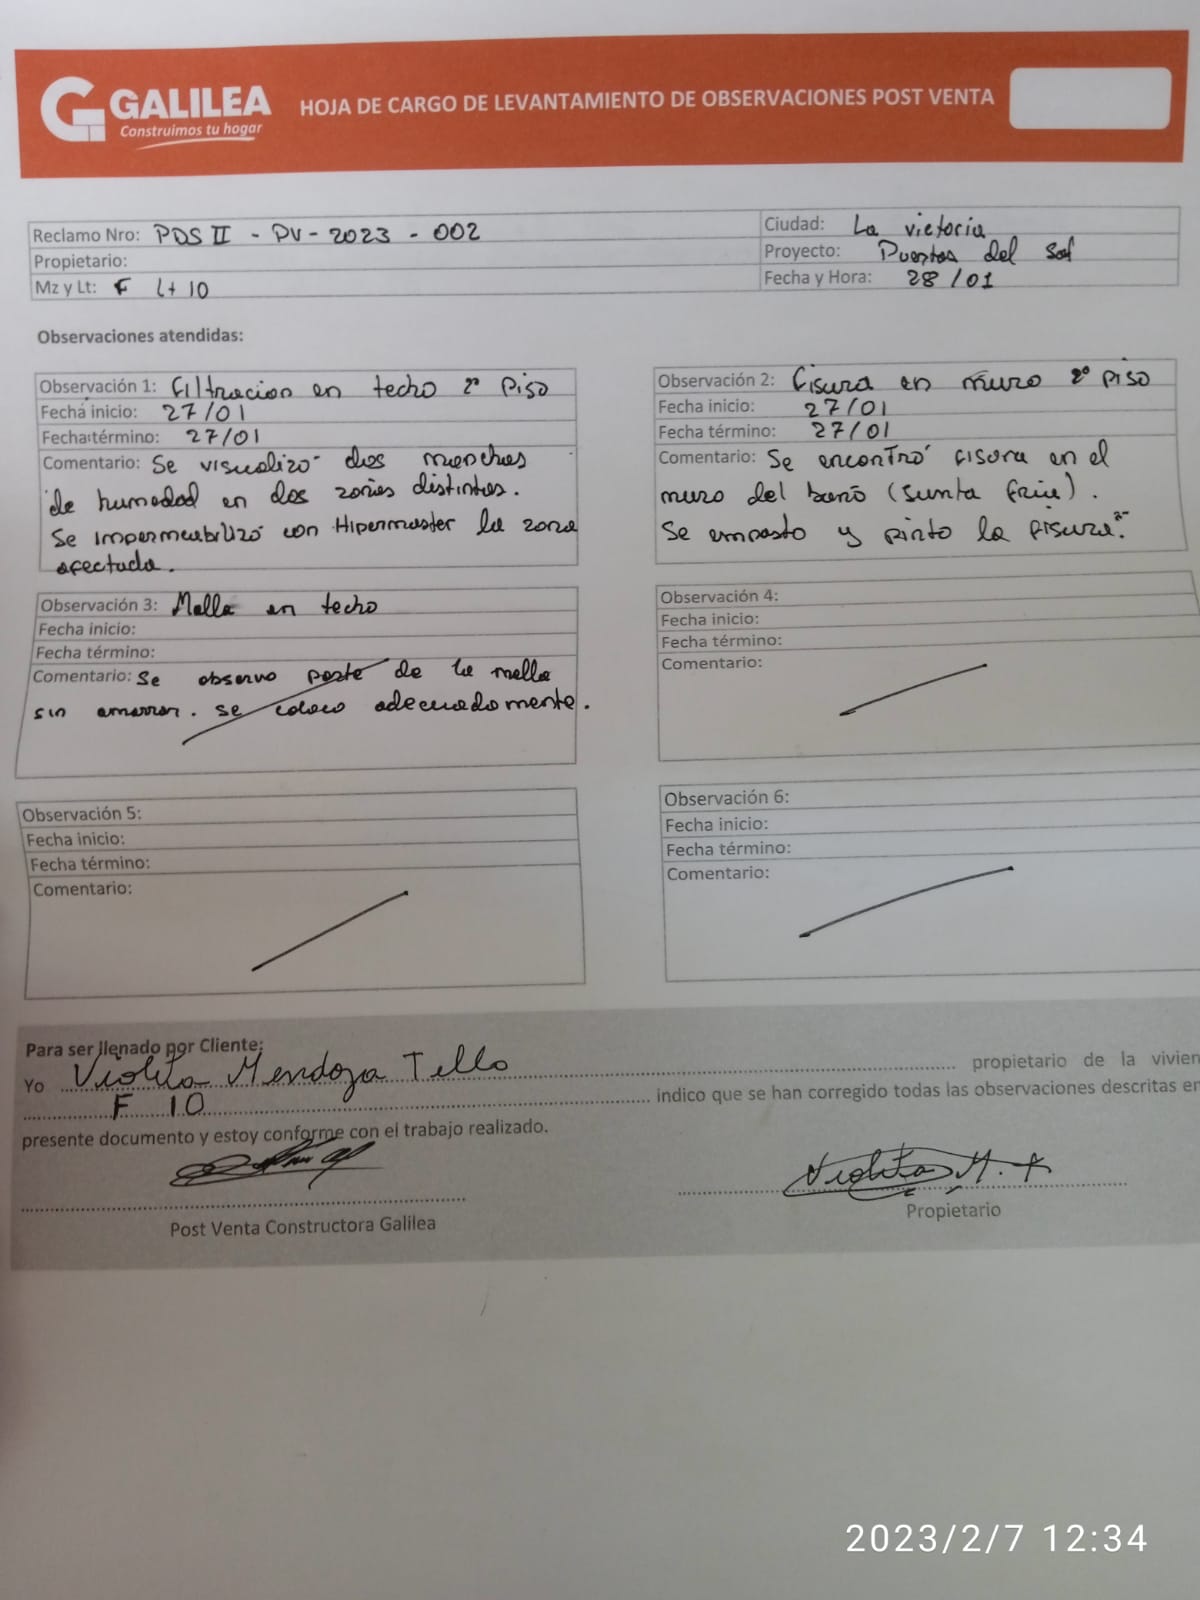 GALILEA
Construimos tu hogar
HOJA DE CARGO DE LEVANTAMIENTO DE OBSERVACIONES POST VENTA
Reclamo Nro: PDS II - PV - 2023 - 002
Propietario:
Mz y Lt: F Lt 10
Ciudad: La victoria
Proyecto: Puertas del Sol
Fecha y Hora: 28/01
Observaciones atendidas:
Observación 1: Filtracion en techo 2º Piso
Fecha inicio: 27/01
Fecha término: 27/01
Comentario: Se visualizó dos manchas
de humedad en dos zonas distintas.
Se impermeabilizó con Hipermaster la zona
afectada.
Observación 2: Fisura en muro 2º piso
Fecha inicio: 27/01
Fecha término: 27/01
Comentario: Se encontró fisura en el
muro del baño (Junta fria).
Se empasto y pinto la fisura.
Observación 3: Malla en techo
Fecha inicio:
Fecha término:
Comentario: Se observo parte de la malla
sin amarrar. se coloco adecuadamente.
Observación 4:
Fecha inicio:
Fecha término:
Comentario:
Observación 5:
Fecha inicio:
Fecha término:
Comentario:
Observación 6:
Fecha inicio:
Fecha término:
Comentario:
Para ser llenado por Cliente:
Yo Violeta Mendoza Tello propietario de la vivien
F 10 indico que se han corregido todas las observaciones descritas en
presente documento y estoy conforme con el trabajo realizado.
Violeta M. T
Post Venta Constructora Galilea
Propietario
2023/2/7 12:34